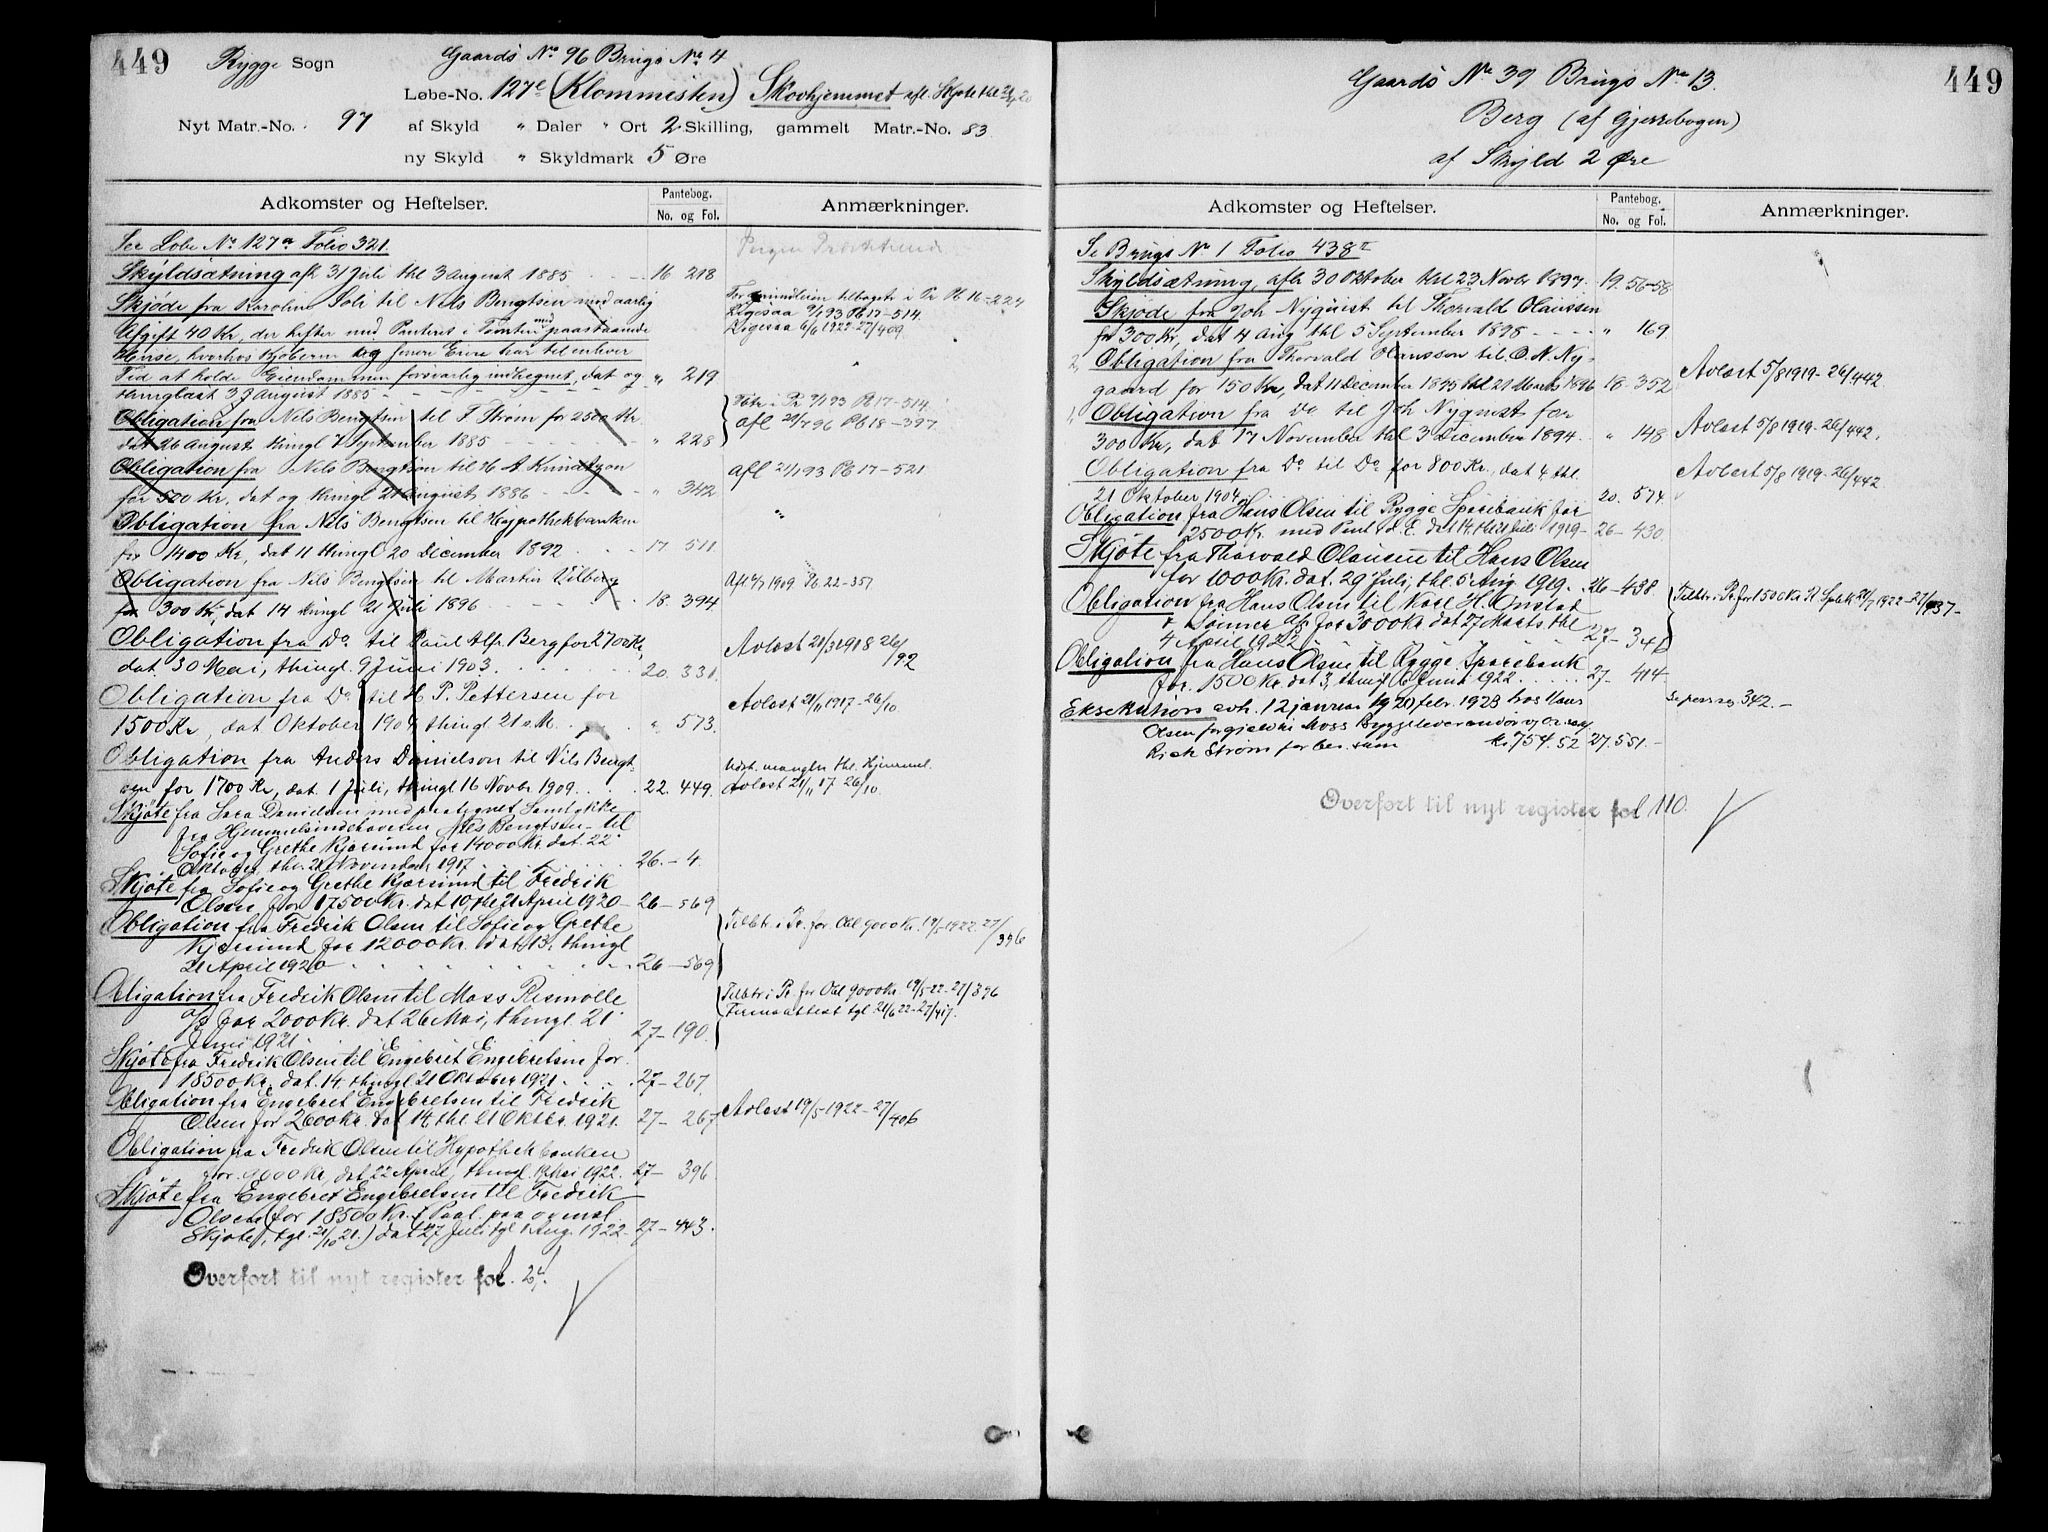 449
Rygge Sogn
Gaards No 96 Brugs No 4
Løbe-No. 127e (Klommesten) Skovhjemmet efl. Skjøte thl
Nyt Matr.-No. 97 af Skyld " Daler " Ort 2 Skilling, gammelt Matr.-No. 83
ny Skyld " Skyldmark 5 Øre
Adkomster og Heftelser.
Pantebog.
No. og Fol.
Anmærkninger.
See Løbe No 127a Folio 321.
Skyldsætning afh 31 Juli thl 3 August 1885 16 218
Skjøde fra Karoline Soli til Nels Bengtsen med aarlig
Afgift 40 Kr, der hefter med Panteret i Tomten med paastaaende
Huse, hvorhos Kjøberen og senere Eiere har til enhver
Tid at holde Eiendommen forsvarlig indhegnet, dat og
thinglæst 3 August 1885 " 219
Frg. mindten tilbagets i Pr Pb 16-224
Ligesaa 9/1 93 Pb 17-514.
Ligesaa 6/6 1922-27/409.
Obligation fra Nels Bengtsen til F Thrøm for 2500 Kr.
dat 26 August thingl 7 September 1885 " 228
Vbtr i Pr 9/1 93 Pb 17-514.
afl 21/7 96 Pb 18-397
Obligation fra Nels Bengtsen til H. A Knudtzon
for 500 Kr, dat og thingl 21 August 1886 " 342
afl 21/1 93 Pb 17-521
Obligation fra Nels Bengtsen til Hypothekbanken
for 1400 Kr, dat 11 thingl 20 December 1892 17 511
Obligation fra Nels Bengtsen til Martin Vilberg
for 300 Kr, dat 14 thingl 21 Juli 1896 18. 394
Afl 1909 Pb 22-351
Obligation fra Do til Paul Alfr. Berg for 2700 Kr,
dat 30 Mai, thingl 9 Juni 1903 20. 331.
Avløst 21/3 1918 26/92
Obligation fra Do til H. P. Pettersen for
1500 Kr, dat Oktober 1904 thingl 21 s. M. " 573.
Avløst 21/11 1917-26/10
Obligation fra Anders Danielson til Nils Bengt-
sen for 1700 Kr, dat. 1 Juli, thingl 16 Novbr 1909. 22. 449.
Udst. mangler thl. Hjemmel.
Avløst 21/11 17 26/10.
Skjøte fra Sara Danielsen med paategnet Samtykke
fra Hjemmelsindehaveren Nels Bengtsen til
Sofie og Grethe Kjærsund for 14000 Kr. dat. 22
Oktober, thl. 21 November 1917 26.-4.
Skjøte fra Sofie og Grethe Kjærsund til Fredrik
Olsen for 17500 Kr. dat 10, thl 21 April 1920 26-569
Obligation fra Fredrik Olsen til Sofie og Grethe
Kjærsund for 12000 Kr. dat. 13, thingl
21 April 1920 26-569
Tilbtr i Pr. for Obl 9000 Kr. 19/5 1922. 27/396
Obligation fra Fredrik Olsen til Moss Rismølle
A/S for 2000 Kr. dat 26 Mai, thingl. 21
Juni 1921 27-190
Tilbtr i Pr. for Obl 9000 Kr. 19/5-22-27/396
Firmaattest tgl 21/6 22-27/417.
Skjøte fra Fredrik Olsen til Engebret Engebretsen for
18500 Kr. dat. 14. thingl 21 Oktober 1921. 27-267.
Obligation fra Engebret Engebretsen til Fredrik
Olsen for 2600 Kr. dat 14, thl. 21 Oktbr. 1921. 27-267
Avløst 19/5-1922-27/406
Obligation fra Fredrik Olsen til Hypothekbanken
for 9000 Kr, dat 22 April, thingl. 19 Mai 1922. 27-396
Skjøte fra Engebret Engebretsen til Fredrik
Olsen (for 18500 Kr. paa ovenst.
Skjøte, tgl. 21/10 21.) dat 27 Juli tgl 1 Aug. 1922 27-443.
Overført til nyt register fol. 24.
449
Gaards No 39 Brugs No 13.
Berg (af Gjerrebogen)
af Skyld 2 Øre
Adkomster og Heftelser.
Pantebog.
No. og Fol.
Anmærkninger.
Se Brugs No 1 Folio 438 II
Skyldsætning, afh 30 Oktober thl 23 Novbr 1897. 19. 56-58
Skjøde fra Joh Nyquist til Thorvald Olaussen
for 300 Kr, dat 4 Aug thl 5 September 1898 " 169.
2, Obligation fra Thorvald Olausson til O. N. Ny-
gaard for 150 Kr, dat 11 December 1895 thl 21 Marts 1896 18. 352
Avløst 5/8 1919-26/442
1, Obligation fra Do til Joh Nyquist for
300 Kr, dat 17 November thl 3 December 1894. " 148
Avløst 5/8 1919-26/442.
Obligation fra Do til Do for 800 Kr., dat 4, thl.
21 Oktober 1904 20. 574
Avløst 5/8 1919-26/442
Obligation fra Hans Olsen til Rygge Sparebank for
2500 Kr. med Pant i d. E. dat 14, thl 21 Juli 1919- 26-430.
Skjøte fra Thorvald Olausen til Hans Olsen
for 1000 Kr. dat. 29 Juli, thl. 5 Aug. 1919. 26-438.
Obligation fra Hans Olsen til Karl H. Onstad
& Sønner A/S for 3000 Kr dat 27 Marts thl
4 April 1922 27-341
Tilbtr i Pr. for 1500 Kr. R. Spbk 1922-27/437-
Obligation fra Hans Olsen til Rygge Sparebank
for 1500 Kr. dat 3, thingl 6 Juni 1922 27-414
Eksekution avh. 12 januar 1923, febr. 1923 hos Hans
Olsen for gjæld til Moss Byggeleverandør og
Rich Strøm for ber. sum kr. 754.52 27. 551.-
Se pers reg. 342.-
Overført til nyt register fol 110.